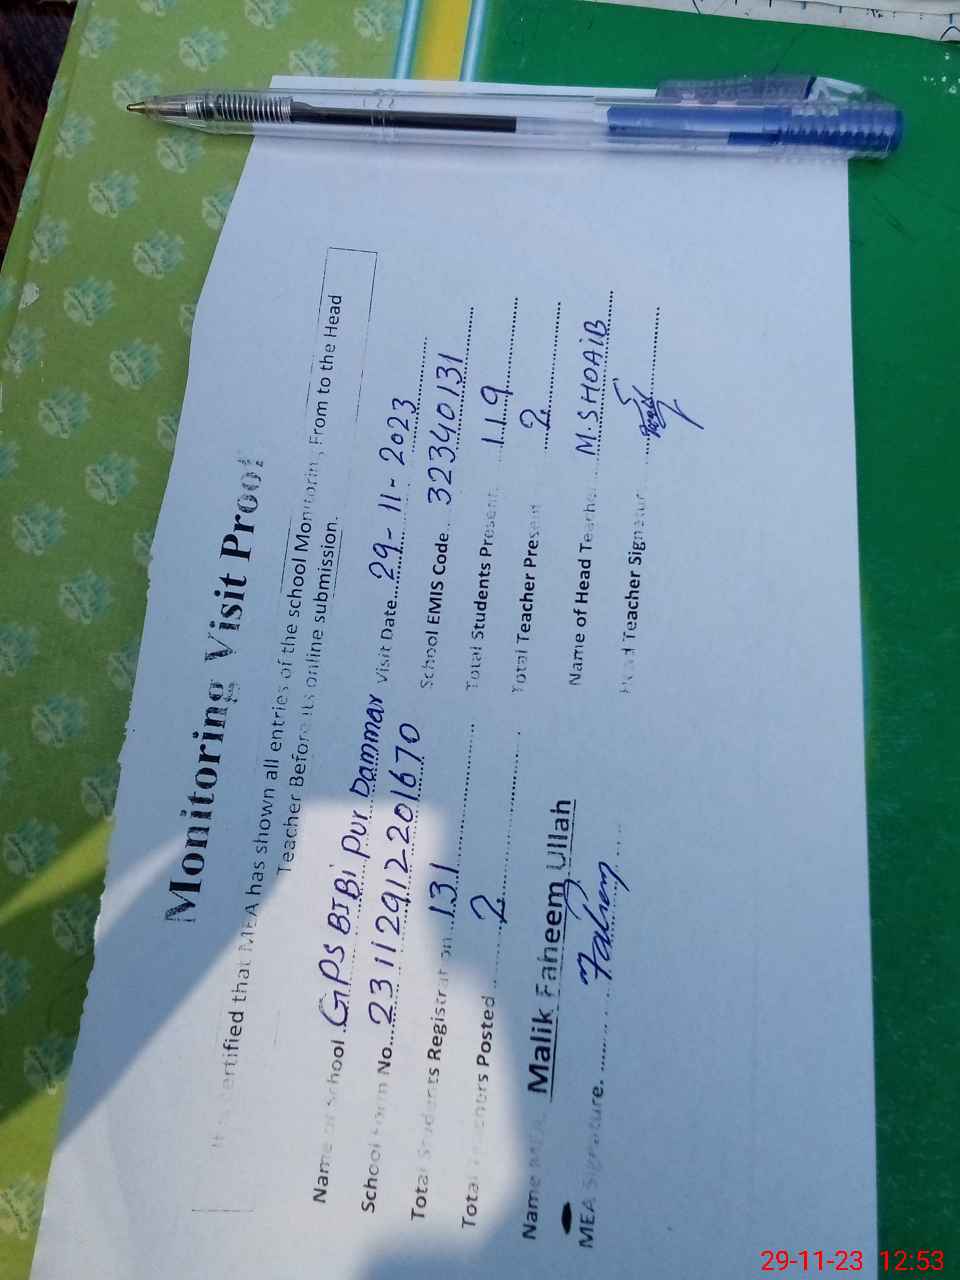 Monitoring Visit Proof
It is certified that MEA has shown all entries of the school Monitoring From to the Head
Teacher Before its online submission.
Name of School GPS BIBI Pur Dammar Visit Date 29-11-2023
School Form No. 23112912201670 School EMIS Code 32340131
Total Students Registration 131 Total Students Present 119
Total Teachers Posted 2 Total Teacher Present 2
Name MEA Malik Faheem Ullah Name of Head Teacher M.SHOAIB
MEA Signature. Faheem Head Teacher Signatur
29-11-23 12:53